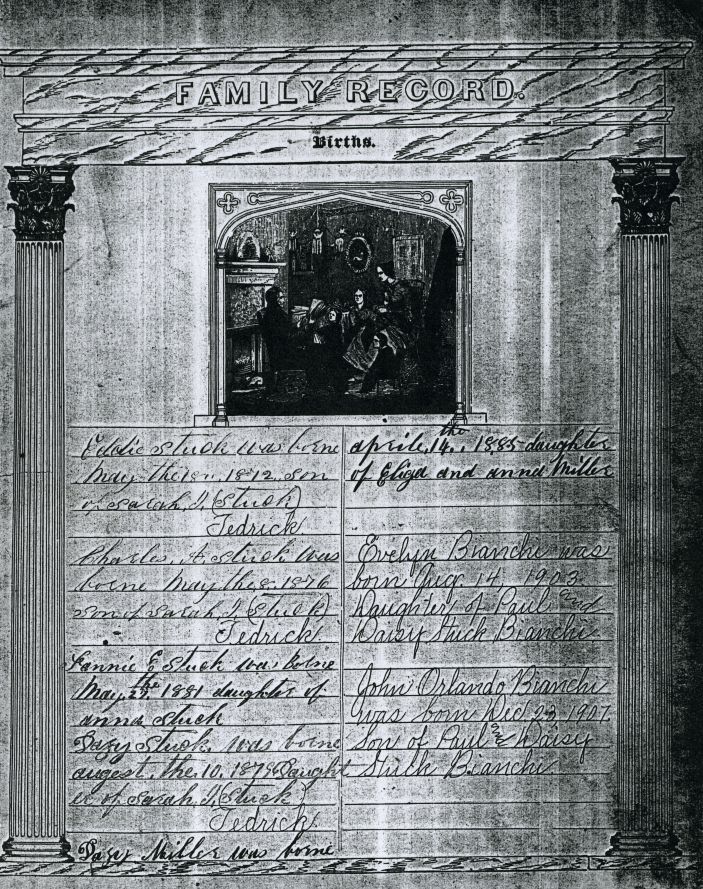 FAMILY RECORD.
Births.
Eddie Stuck was borne
May the 18, 1872, son
of Sarah J, (Stuck)
Tedrick
Charles, A, Stuck was
borne May the 8 1876
son of Sarah J (Stuck)
Tedrick
Fannie E Stuck was Borne
May, 25th 1881 daughter of
anna Stuck
Dazy Stuck, was borne
augest, the 10, 1879 Daught
er of Sarah, J, (Stuck)
Tedrick
Dazy Miller was borne
aprile, 14th, 1885 daughter
of Eliga and anna Miller
Evelyn Bianchi was
born Aug. 14, 1903.
Daughter of Paul and
Daisy Stuck Bianchi
John Orlando Bianchi
was born Dec 23, 1907
Son of Paul and Daisy
Stuck Bianchi.